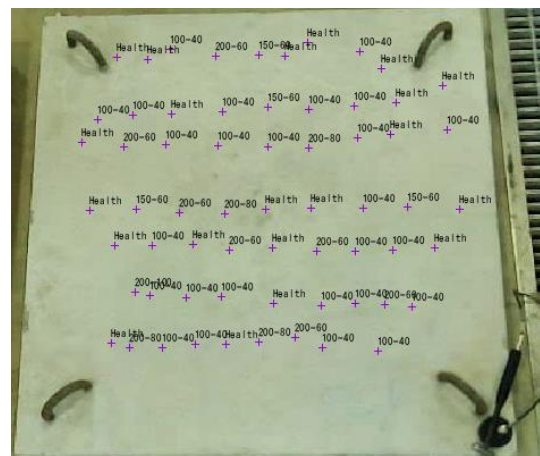 Health Health 100-40 200-60 150-60 Health Health 100-40 Health Health
100-40 100-40 Health 100-40 150-60 100-40 100-40 Health 100-40
Health 200-60 100-40 100-40 100-40 200-80 100-40 Health
Health 150-60 200-60 200-80 Health Health 100-40 150-60 Health
Health 100-40 Health 200-60 Health 200-60 100-40 100-40 Health
200-100 100-40 100-40 100-40 Health 100-40 100-40 200-60 100-40
Health 200-80 100-40 100-40 Health 200-80 200-60 100-40 100-40